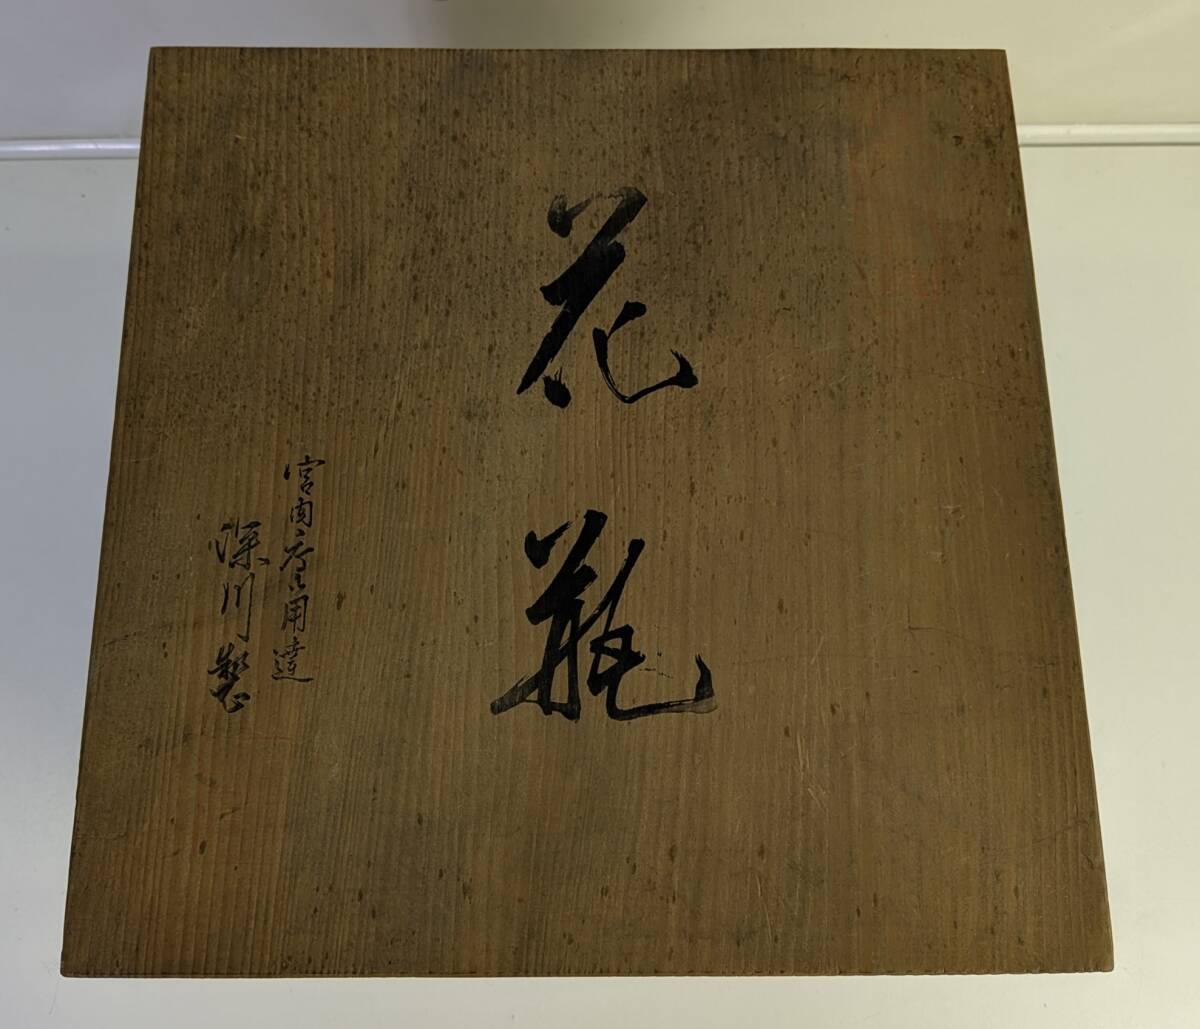 花瓶
宮内庁御用達
深川製